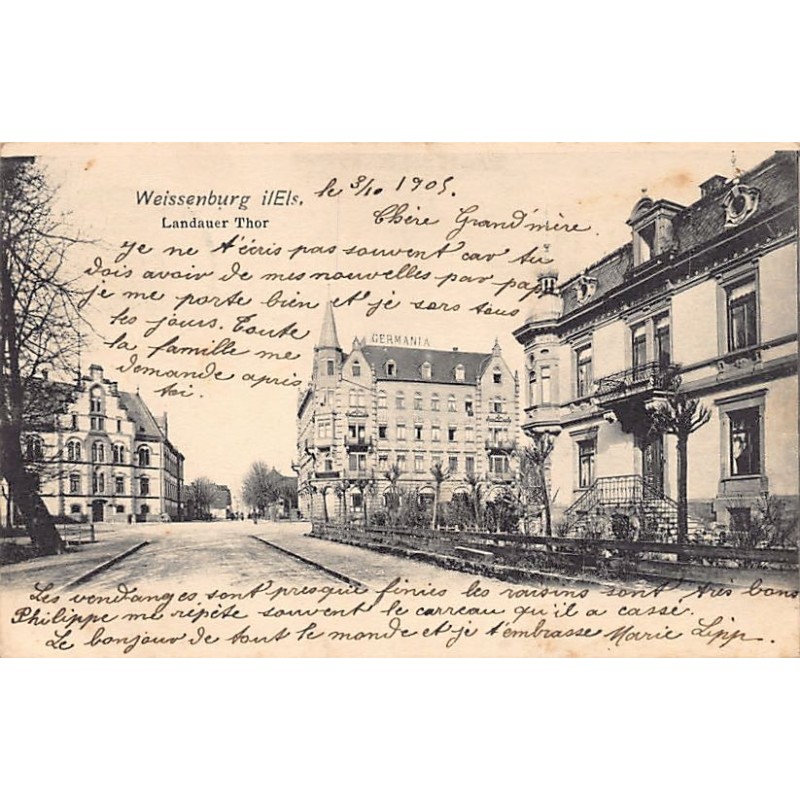 Weissenburg i/Els.
Landauer Thor
le 3/10 1905.
Chère Grand'mère.
Je ne t'écris pas souvent car tu
dois avoir de mes nouvelles par
je me porte bien et je sors tous
les jours. Toute
la famille me
demande après
toi.
GERMANIA
Les vendanges sont presque finies les raisins sont très bons
Philippe me répète souvent le carreau qu'il a cassé.
Le bonjour de tout le monde et je t'embrasse Marie Lipp.